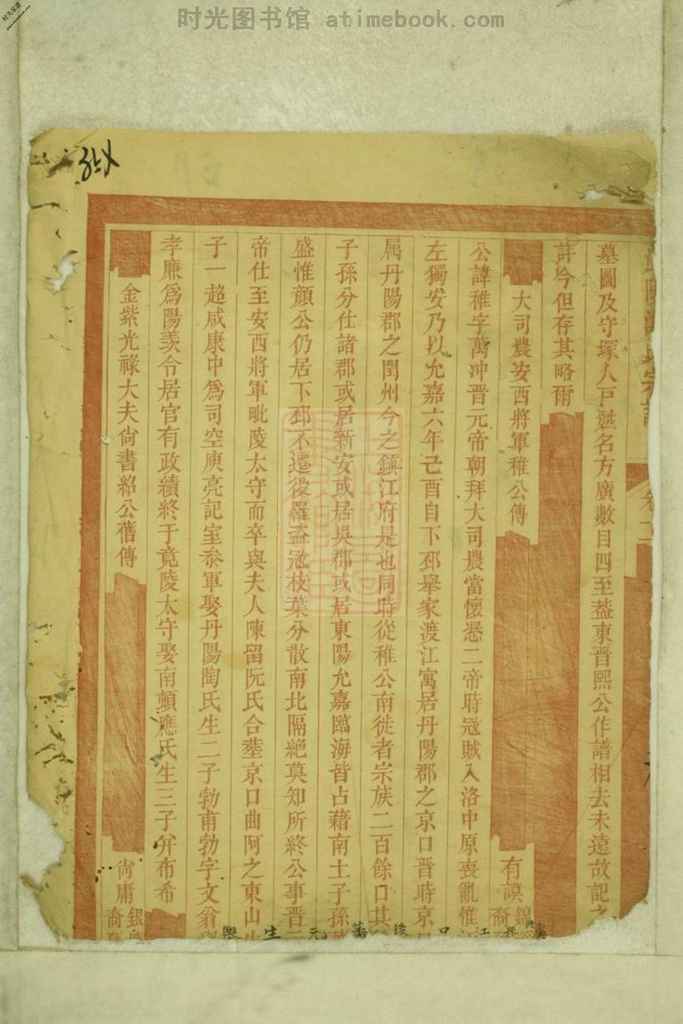 时光图书馆 atimebook.com
墓圖及守塚人戸甦名方廣數目四至葢東晉熙公作譜相去未遠故記之
詳今但存其略爾
大司農安西將軍稚公傳
有謨
公諱稚字萬冲晋元帝朝拜大司農當懷愍二帝時冦賊入洛中原喪亂惟
左獨安乃以允嘉六年己酉自下邳舉家渡江寓居丹陽郡之京口晋時京
属丹陽郡之閏州今之鎮江府是也同時從稚公南徙者宗族二百餘口其
子孫分仕諸郡或居新安或居吳郡或居東陽允嘉臨海皆占藉南土子孫
盛惟顔公仍居下邳不遷後羅盗冦枝葉分散南北隔絶莫知所終公事晋
帝仕至安西將軍毗陵太守而卒與夫人陳留阮氏合塟京口曲阿之東山
子一趨咸康中爲司空庾亮記室叅軍娶丹陽陶氏生二子勃甫勃字文
孝廉爲陽羡令居官有政績終于竟陵太守娶南頓應氏生三子弁布希
金紫光祿大夫尙書紹公偆傳
甯庸